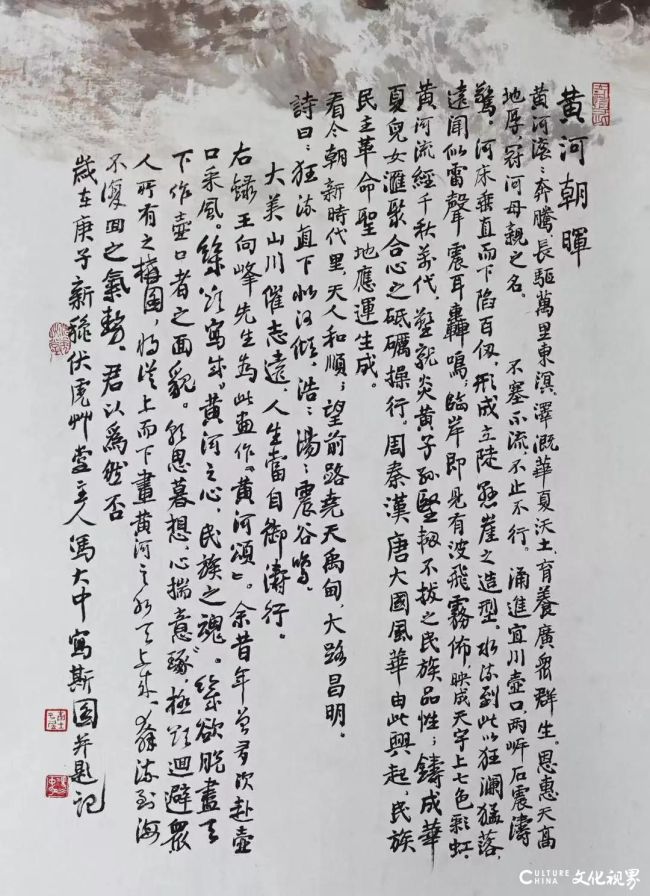 黄河朝暉
黄河滚:奔騰，長驅萬里東溟，澤溉華夏沃土，育養廣衆群生。恩惠天高
地厚，冠河母親之名。 不塞不流，不止不行。涌進宜川壺口，两岸石震濤
驚，河床垂直而下陷百仭，形成立陡懸崖之造型。水流到此以狂瀾猛落，
遠聞似雷聲震耳轟鳴；臨岸即見有波飛霧佈，映成天宇上七色彩虹。
黄河流經千秋萬代，塑就炎黄子孫堅韧不拔之民族品性；鑄成華
夏兒女滙聚合心之砥礪操行。周秦漢唐大國風華由此興起，民族
民主革命聖地應運生成。
看今朝新時代里，天人和順；望前路堯天禹甸，大路昌明。
詩曰：狂流直下似河傾，浩:湯:震谷鳴。
大美山川催志遠，人生當自御濤行。
右録王向峰先生為此畫作《黄河頌》。余昔年曾多次赴壺
口采風。繼寫成《黄河之心，民族之魂》。繼欲脱盡天
下作壺口者之面貌。朝思暮想，心揣意琢，極力迴避衆
人所有之構圖，將從上而下畫黄河之水天上來，奔流到海
不復回之氣勢，君以爲然否
歲在庚子新秋伏虎艸堂主人馮大中寫斯圖并題記
CULTURE CHINA 文化視界